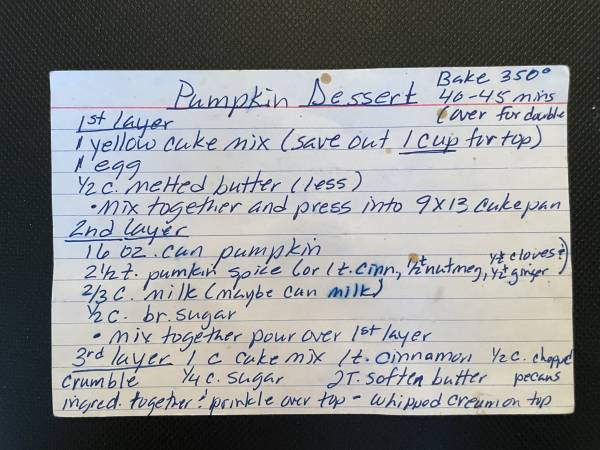 Pumpkin Dessert
Bake 350°
40-45 mins
(over for double
1st layer
1 yellow cake mix (save out 1 cup for top)
1 egg
1/2 c. melted butter (less)
• mix together and press into 9x13 cake pan
2nd layer
16 oz. can pumpkin
2 1/2 t. pumkin spice (or 1 t. cinn, 1/2 t nutmeg, 1/4 t cloves, 1/2 t ginger)
2/3 c. milk (maybe can milk)
1/2 c. br. sugar
• mix together pour over 1st layer
3rd layer 1 c cake mix 1 t. cinnamon 1/2 c. chopped
crumble 1/4 c. sugar 2 T. soften butter pecans
ingred. together & prinkle over top - whipped cream on top